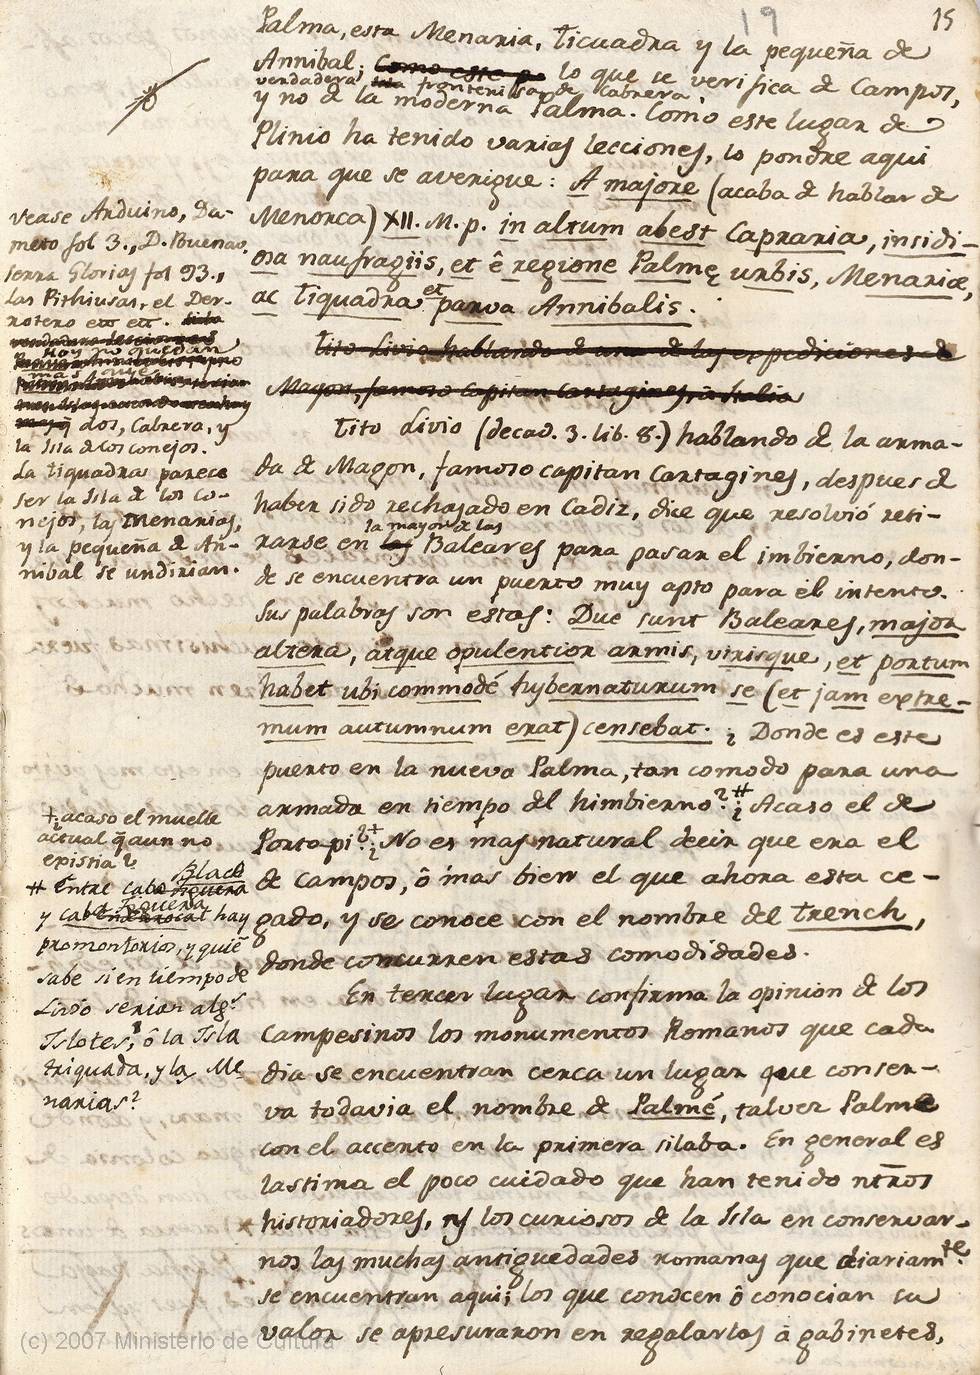 19
15
Palma, esta Menaria, Ticuadra y la pequeña de
Annibal; como este pe lo que se verifica de Campos,
verdadera fronteriza de Cabrera,
y no de la moderna Palma. Como este lugar de
Plinio ha tenido varias lecciones, lo pondre aqui
para que se averigue: A majore (acaba de hablar de
Menorca) XII. M. p. in altum abest Capraria, insidi-
osa naufragiis, et ê regione Palmę urbis, Menariæ,
ac Tiquadra et parva Annibalis.
Tito Livio hablando de una de las expediciones de
Magon, famoso capitan Cartagines, a Italia
Tito Livio (decad. 3. lib. 8.) hablando de la arma-
da de Magon, famoso capitan Cartagines, despues de
haber sido rechasado en Cadiz, dice que resolvió reti-
la mayor de las
rarse en las Baleares para pasar el imbierno, don-
de se encuentra un puerto muy apto para el intento.
Sus palabras son estas: Due sunt Baleares, major
altera, atque opulentior armis, virisque, et portum
habet ubi commodé hybernaturum se (et jam extre-
mum autumnum erat) censebat. ¿Donde es este
puerto en la nueva Palma, tan comodo para una
armada en tiempo del himbierno?# ¿Acaso el de
Portopi?+ ¿No es mas natural decir que era el
de Campos, ô mas bien el que ahora esta ce-
gado, y se conoce con el nombre del Trench,
donde concurren estas comodidades.
En tercer lugar confirma la opinion de los
Campesinos los monumentos Romanos que cada
dia se encuentran cerca un lugar que conser-
va todavia el nombre de Palmé, talvez Palme
con el accento en la primera silaba. En general es
lastima el poco cuidado que han tenido ntrõs
historiadores, y los curiosos de la Isla en conservar-
nos las muchas antiguedades romanas que diariamte.
se encuentran aqui; los que conocen ô conocian su
valor se apresuraron en regalarlas a gabinetes,
vease Arduino, Da-
meto fol 3., D. Buenav.
Serra Glorias fol 93.,
las Pithiusas, el Der-
rotero etc etc.
Hoy no quedan
mas
q̃ dos, Cabrera, y
la Isla de los conejos.
La Tiquadra parece
ser la Isla de los co-
nejos, las Menarias,
y la pequeña de An-
nibal se undirian.
+ ¿acaso el muelle
actual q̃ aun no
existia?
# Entre cabo Blaco
y cabo Figuera hay
promontorios, y quiē
sabe si en tiempo de
Livio serian algs
Islotes, ô la Isla
triquada, y las Me
narias?
(c) 2007 Ministerio de Cultura